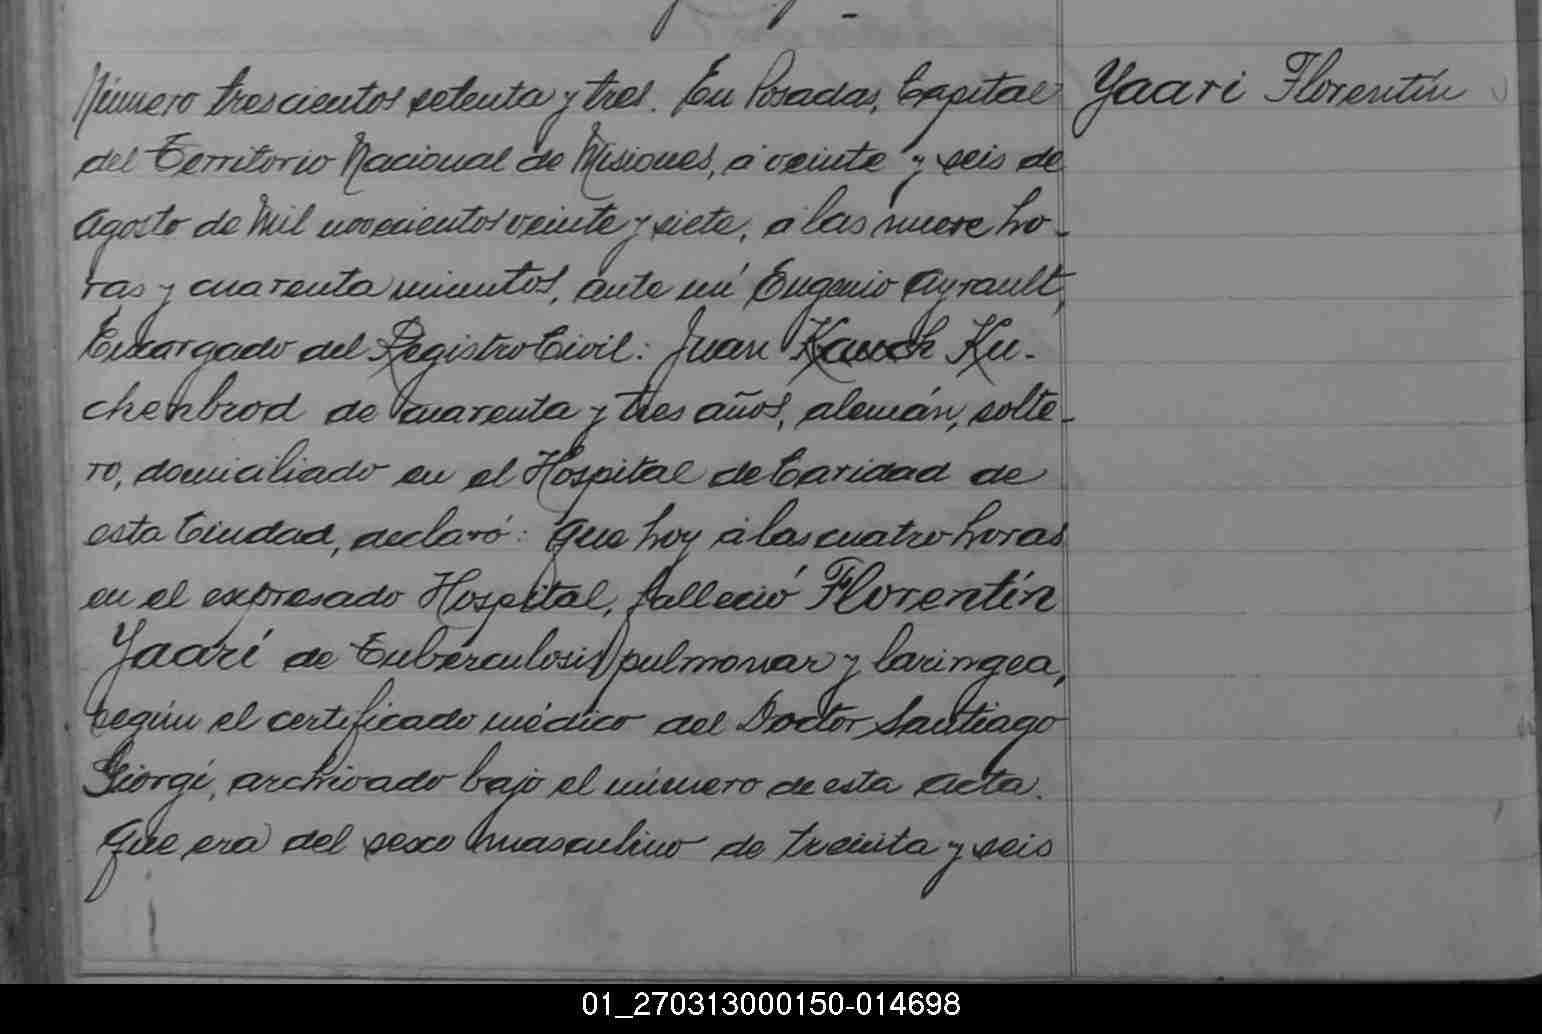 Yaari Florentín
Número trescientos setenta y tres. En Posadas, Capital
del Territorio Nacional de Misiones, á veinte y seis de
Agosto de Mil novecientos veinte y siete, á las nueve ho-
ras y cuarenta minutos, ante mí Eugenio Ayrault,
Encargado del Registro Civil: Juan Ku-
chenbrod de cuarenta y tres años, alemán, solte-
ro, domiciliado en el Hospital de Caridad de
esta Ciudad, declaró: Que hoy á las cuatro horas
en el expresado Hospital, falleció Florentín
Yaari de Tuberculosis pulmonar y laringea,
según el certificado médico del Doctor Santiago
Giorgi, archivado bajo el número de esta acta.
Que era del sexo masculino de treinta y seis
01_270313000150-014698